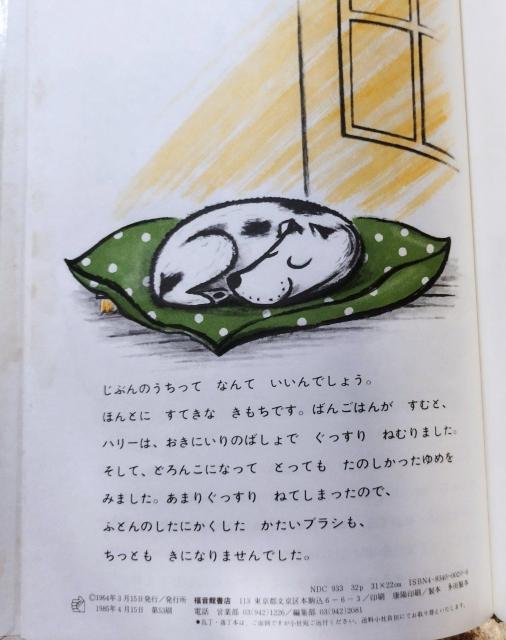 じぶんのうちって　なんて　いいんでしょう。
ほんとに　すてきな　きもちです。ばんごはんが　すむと、
ハリーは、おきにいりのばしょで　ぐっすり　ねむりました。
そして、どろんこになって　とっても　たのしかったゆめを
みました。あまりぐっすり　ねてしまったので、
ふとんのしたにかくした　かたいブラシも、
ちっとも　きになりませんでした。
NDC 933　32p　31×22cm　ISBN4-8340-0020-4
©1964年3月15日発行／発行所　福音館書店　113 東京都文京区本駒込6-6-3／印刷　康陽印刷／製本　多田製本
1985年4月15日　第53刷　電話　営業部 03(942)1226／編集部 03(942)2081
●乱丁・落丁本は、ご面倒ですが小社宛ご送付ください。送料小社負担にてお取り替えいたします。